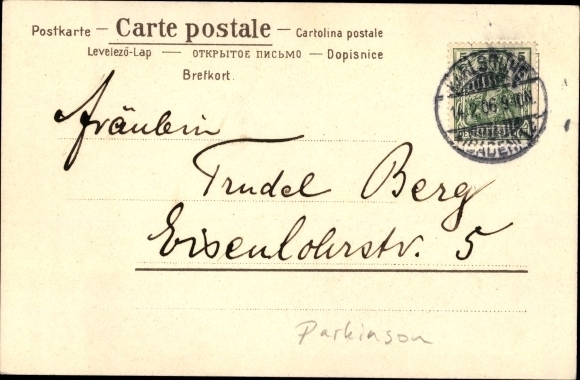 Postkarte – Carte postale – Cartolina postale
Levelező-Lap — ОТКРЫТОЕ ПИСЬМО — Dopisnice
Brefkort.
KARLSRUHE
06
(BADEN)
Fräulein
Trudel Berg
Eisenlohrstr. 5
Parkinson